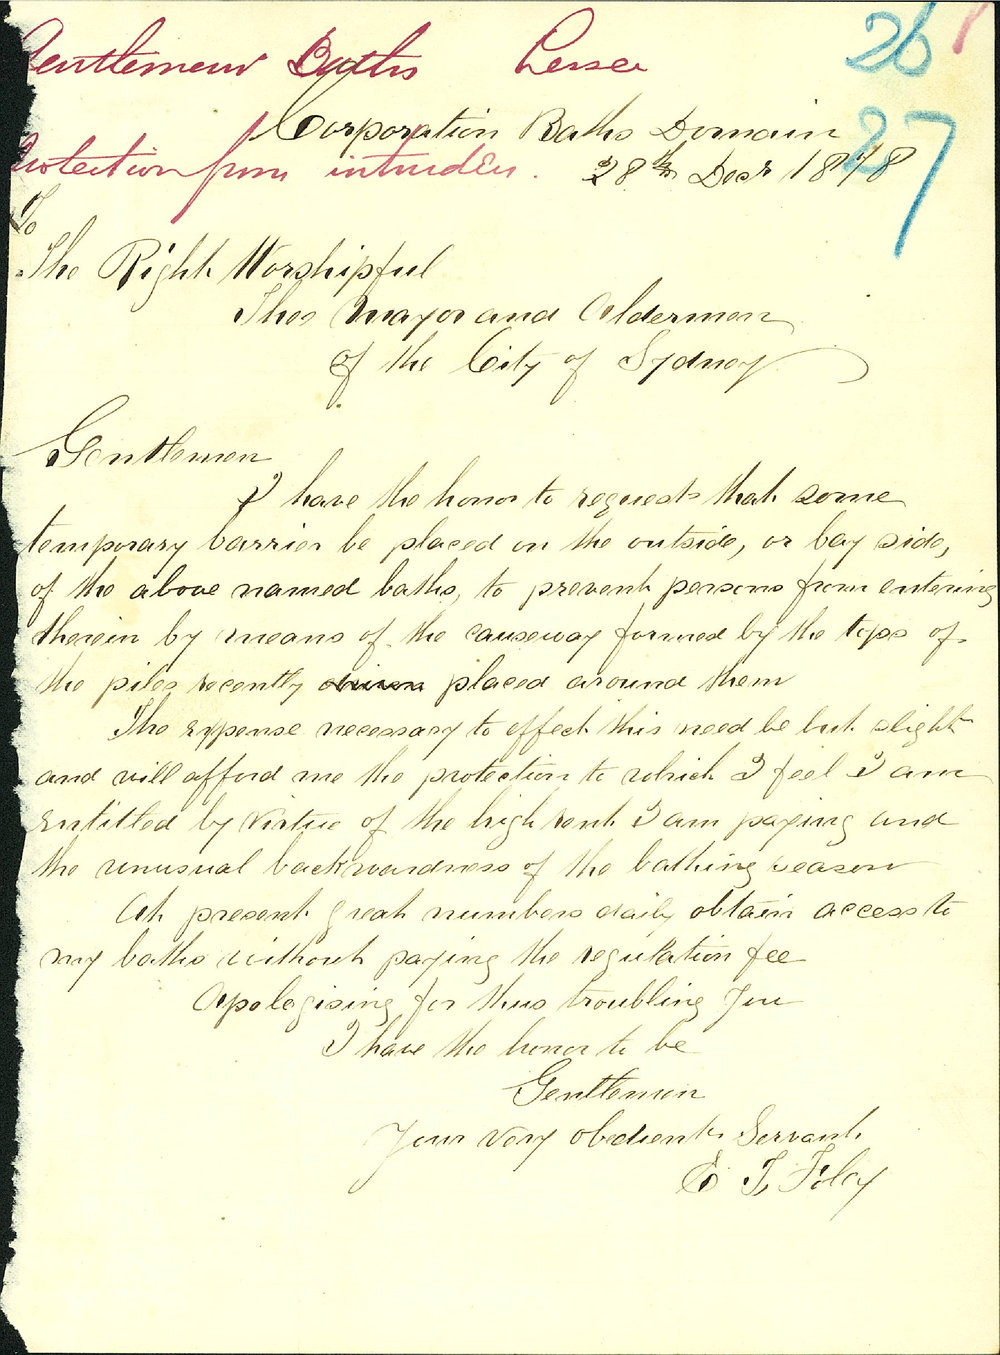 Gentlemens Baths Lessee
26
Corporation Baths Domain
27
Protection from intruders.
28th Decr 1878
To
The Right Worshipful
The Mayor and Aldermen
of the City of Sydney
Gentlemen
I have the honor to request that some
temporary barrier be placed on the outside, or bay side,
of the above named baths, to prevent persons from entering
therein by means of the causeway formed by the tops of
the piles recently driven placed around them
The expense necessary to effect this need be but slight
and will afford me the protection to which I feel I am
entitled by virtue of the high rent I am paying and
the unusual backwardness of the bathing season
At present great numbers daily obtain access to
my baths without paying the regulation fee
Apologising for thus troubling You
I have the honor to be
Gentlemen
Your Very obedient Servant
E T Foley